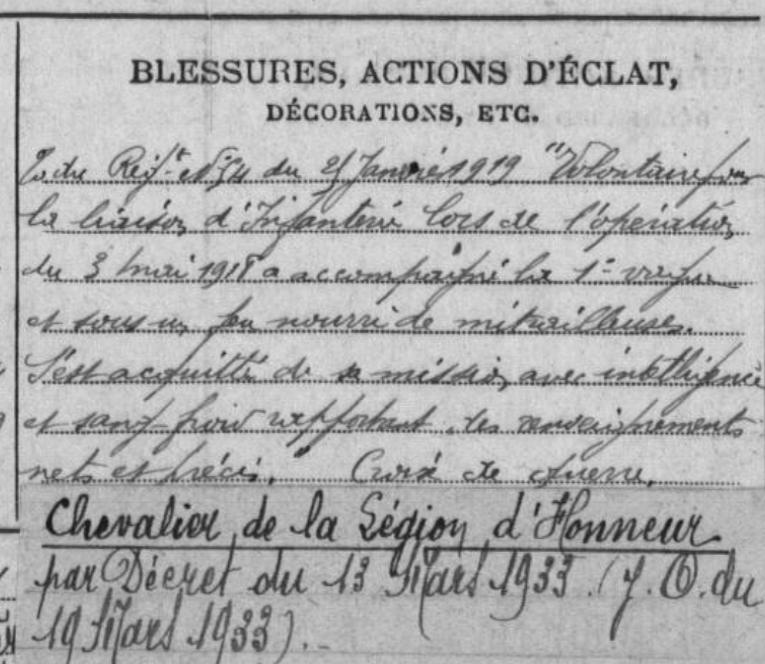 BLESSURES, ACTIONS D'ÉCLAT,
DÉCORATIONS, ETC.
du Régt du Janvier 1919 "Volontaire pour
la liaison d'Infanterie lors de l'opération
du 3 mai 1918 a accompagné la 1e vague
et sous un feu nourri de mitrailleuses.
S'est acquitté de sa mission avec intelligence
et sang froid rapportant des renseignements
nets et précis." Croix de Guerre.
Chevalier de la Légion d'Honneur
par Décret du 13 Mars 1933. (J.O. du
19 Mars 1933).-